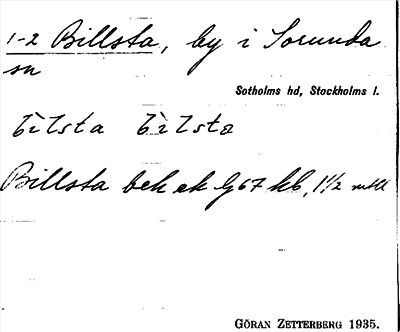 1-2 Billsta, by i Sorunda
sn
Sotholms hd, Stockholms l.
b̀ìlsta b̀ìlsta
Billsta bek ek G 67 kb, 1 1/2 mtl
GÖRAN ZETTERBERG 1935.